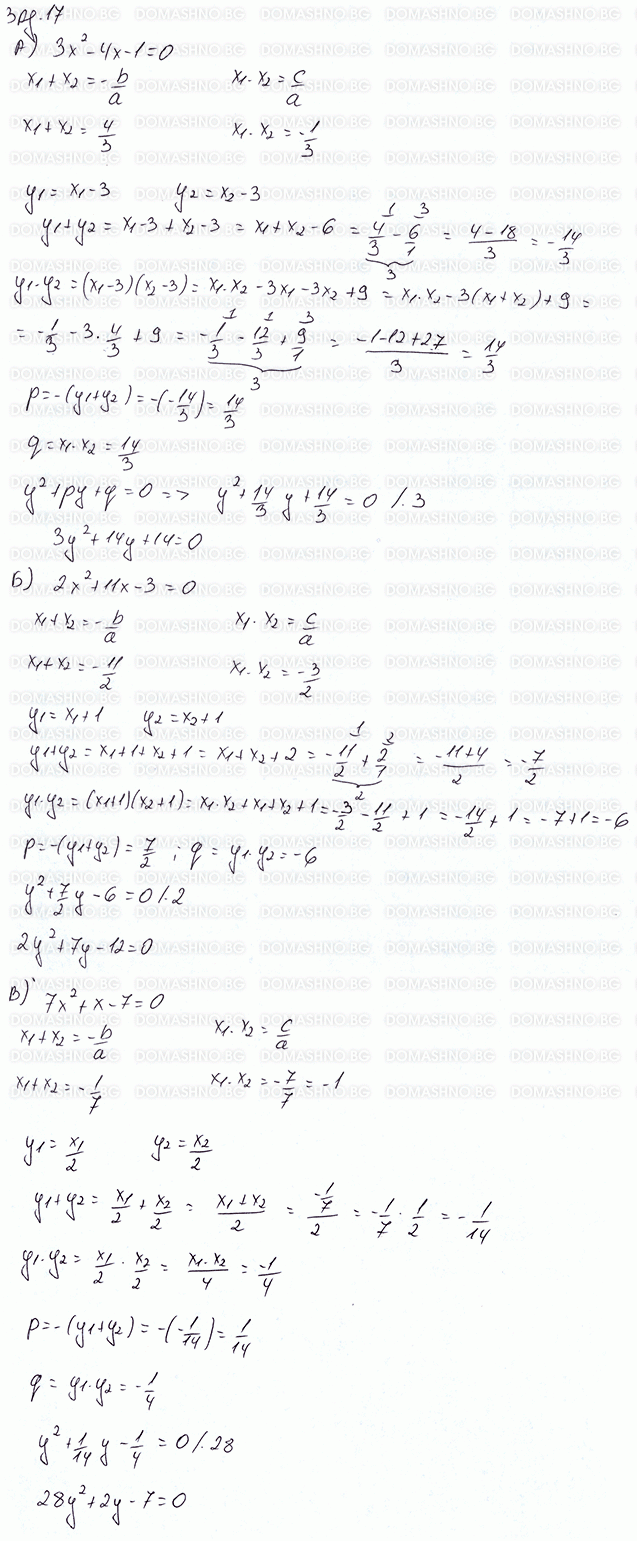 Зад.17
А) 3x² - 4x - 1 = 0
x₁ + x₂ = -b/a    x₁ . x₂ = c/a
x₁ + x₂ = 4/3    x₁ . x₂ = -1/3
y₁ = x₁ - 3    y₂ = x₂ - 3
y₁ + y₂ = x₁ - 3 + x₂ - 3 = x₁ + x₂ - 6 = 4/3 - 6/1 = (4 - 18)/3 = -14/3
y₁ . y₂ = (x₁ - 3)(x₂ - 3) = x₁ . x₂ - 3x₁ - 3x₂ + 9 = x₁ . x₂ - 3(x₁ + x₂) + 9 =
= -1/3 - 3 . 4/3 + 9 = -1/3 - 12/3 + 9/1 = (-1 - 12 + 27)/3 = 14/3
p = -(y₁ + y₂) = -(-14/3) = 14/3
q = x₁ . x₂ = 14/3
y² + py + q = 0 => y² + 14/3 y + 14/3 = 0 /.3
3y² + 14y + 14 = 0
Б) 2x² + 11x - 3 = 0
x₁ + x₂ = -b/a    x₁ . x₂ = c/a
x₁ + x₂ = -11/2    x₁ . x₂ = -3/2
y₁ = x₁ + 1    y₂ = x₂ + 1
y₁ + y₂ = x₁ + 1 + x₂ + 1 = x₁ + x₂ + 2 = -11/2 + 2/1 = (-11 + 4)/2 = -7/2
y₁ . y₂ = (x₁ + 1)(x₂ + 1) = x₁ . x₂ + x₁ + x₂ + 1 = -3/2 - 11/2 + 1 = -14/2 + 1 = -7 + 1 = -6
p = -(y₁ + y₂) = 7/2 ; q = y₁ . y₂ = -6
y² + 7/2 y - 6 = 0 /.2
2y² + 7y - 12 = 0
В) 7x² + x - 7 = 0
x₁ + x₂ = -b/a    x₁ . x₂ = c/a
x₁ + x₂ = -1/7    x₁ . x₂ = -7/7 = -1
y₁ = x₁/2    y₂ = x₂/2
y₁ + y₂ = x₁/2 + x₂/2 = (x₁ + x₂)/2 = (-1/7)/2 = -1/7 . 1/2 = -1/14
y₁ . y₂ = x₁/2 . x₂/2 = (x₁ . x₂)/4 = -1/4
p = -(y₁ + y₂) = -(-1/14) = 1/14
q = y₁ . y₂ = -1/4
y² + 1/14 y - 1/4 = 0 /.28
28y² + 2y - 7 = 0